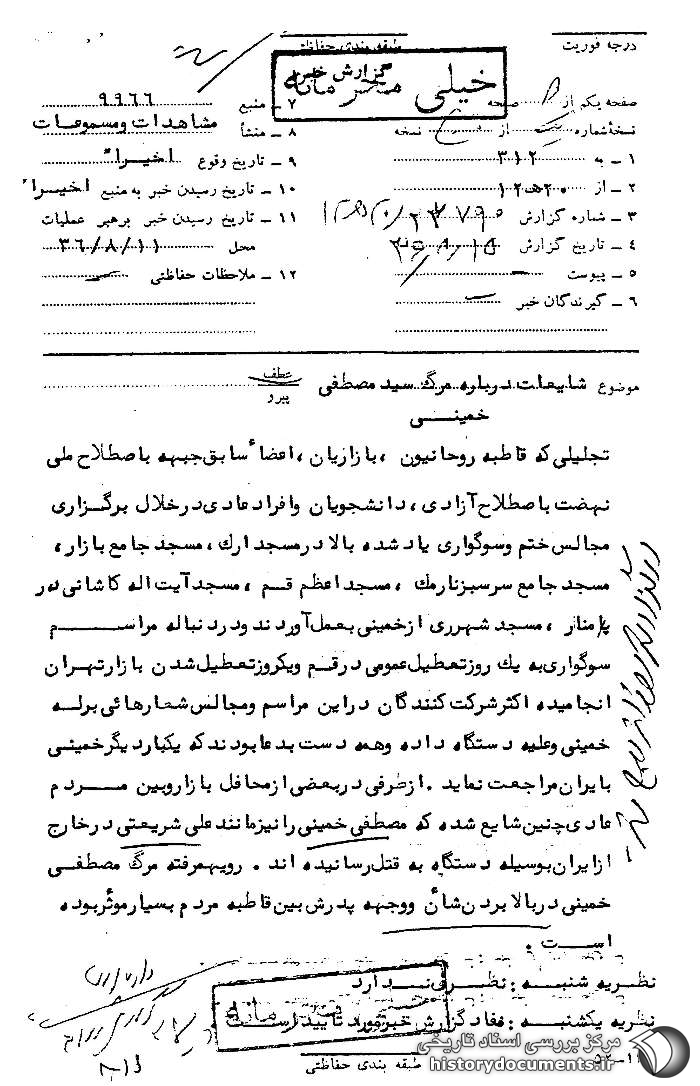 درجه فوریت
طبقه بندی حفاظتی
گزارش خبر
خیلی محرمانه
صفحه یکم از صفحه
نسخهٔ شماره یک از نسخه
۱ ــ به ۳۱۲
۲ ــ از ۲۰ ه‍ ۱۲
۳ ــ شماره گزارش
۴ ــ تاریخ گزارش
۵ ــ پیوست ــ
۶ ــ گیرندگان خبر ــ
۷ ــ منبع ۹۹۶۶
۸ ــ منشأ مشاهدات و مسموعات
۹ ــ تاریخ وقوع اخیراً
۱۰ ــ تاریخ رسیدن خبر به منبع اخیراً
۱۱ ــ تاریخ رسیدن خبر برهبر عملیات
محل ۳۶/۸/۱۱
۱۲ ــ ملاحظات حفاظتی ــ
موضوع شایعات درباره مرگ سید مصطفی
خمینــی
عطف
پیرو
تجلیلی که قاطبه روحانیون ، بازاریان ، اعضاء سابق جبهه باصطلاح ملی
نهضت باصطلاح آزادی ، دانشجویان وافراد عادی در خلال برگزاری
مجالس ختم وسوگواری یاد شده بالا در مسجد ارك ، مسجد جامع بازار ،
مسجد جامع سرسبز نارمك ، مسجد اعظم قـم ، مسجد آیت اله کاشانی در
پامنار ، مسجد شهرری از خمینی بعمل آوردند ودر دنباله مراســـم
سوگواری به یك روز تعطیل عمومی در قم ویکروز تعطیل شدن بازار تهران
انجامیده اکثر شرکت کنندگان در این مراسم ومجالس شعارهائی برلـه
خمینی وعلیه دستگاه داده وهمه دست بدعا بودند که یکبار دیگر خمینی
بایران مراجعت نماید . از طرفی در بعضی از محافل بازار وبین مــردم
عادی چنین شایع شده که مصطفی خمینی را نیز مانند علی شریعتی در خارج
از ایران بوسیله دستگاه به قتل رسانیده اند . رویهمرفته مرگ مصطفــی
خمینی در بالا بردن شأن ووجهه پدرش بین قاطبه مردم بسیار موثر بوده
اســت .
نظریه شنبـه : نظــری نــدارد
نظریه یکشنبـه : مفاد گزارش خبر مورد تایید است
خیلی محرمانه
طبقه بندی حفاظتی
مرکز بررسی اسناد تاریخی
historydocuments.ir